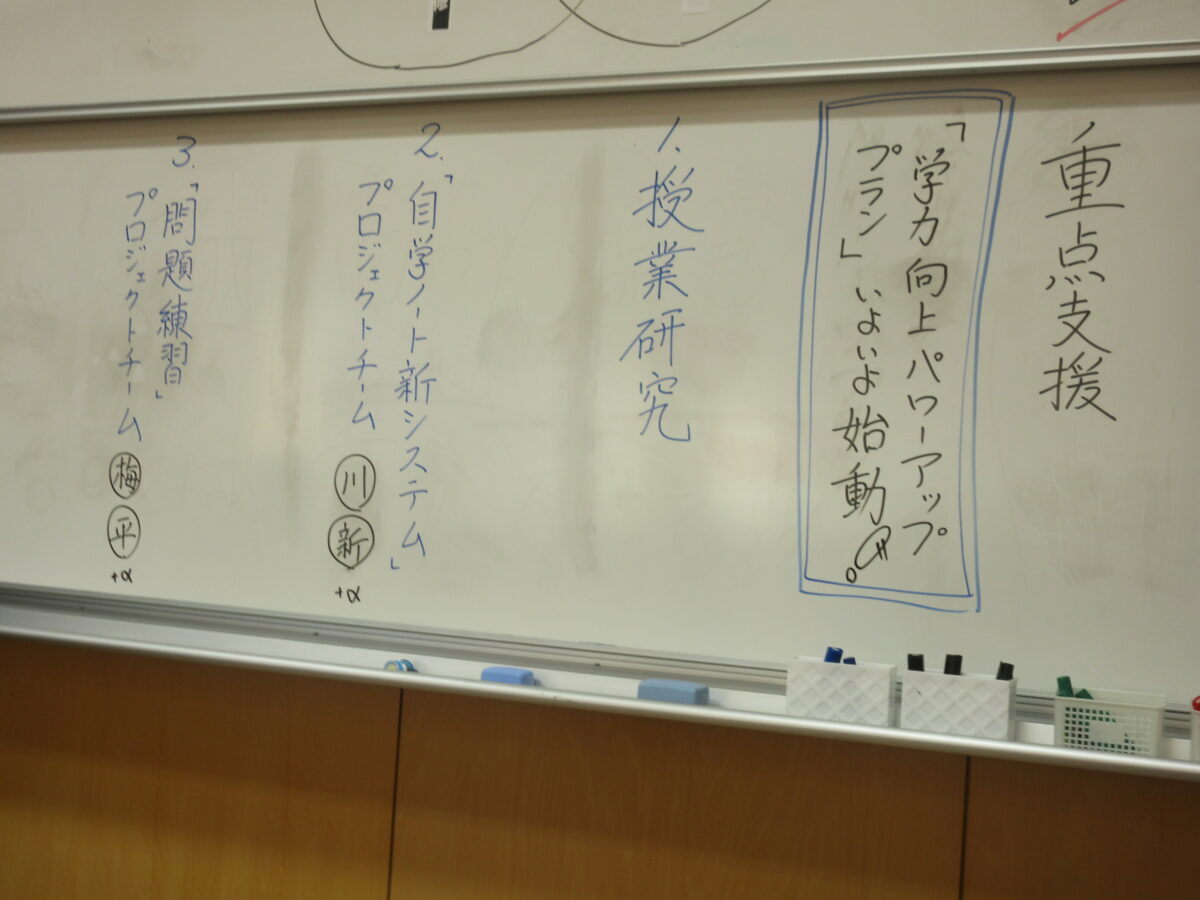 重点支援
「学力向上パワーアップ
プラン」いよいよ始動!!。
1.授業研究
2.「自学ノート新システム」
プロジェクトチーム 川 新 +α
3.「問題練習」
プロジェクトチーム 梅 平 +α